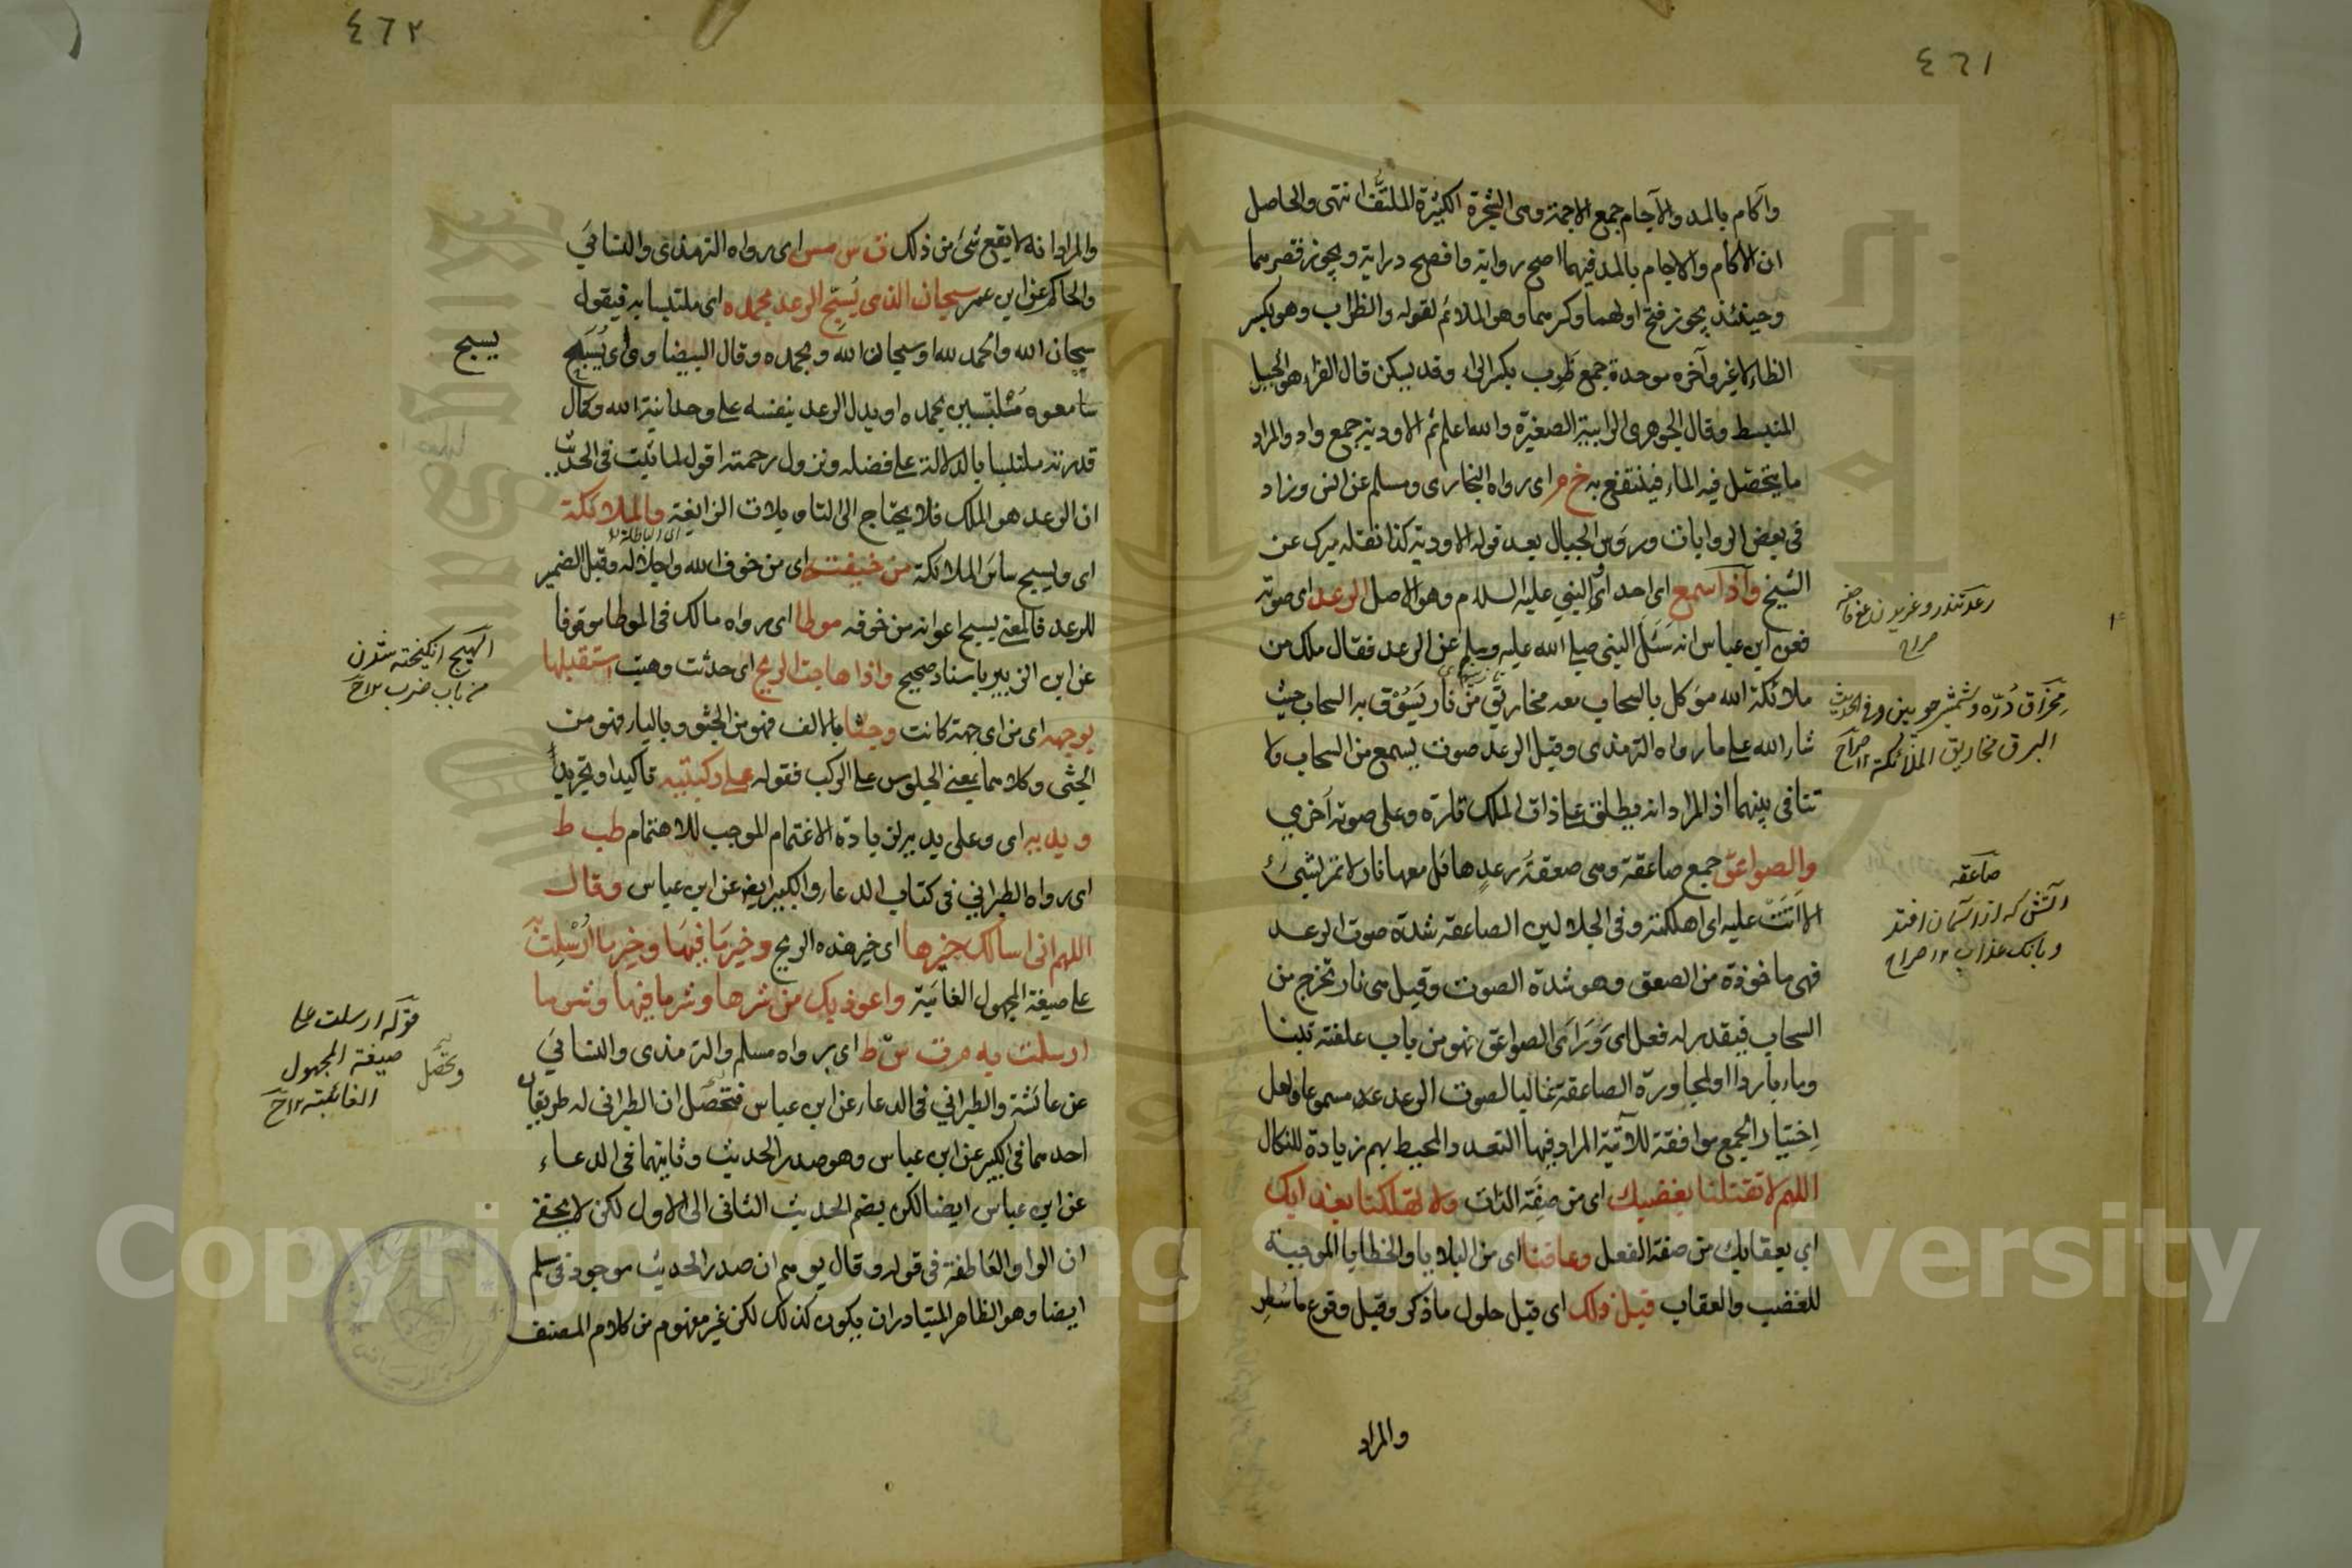 ٤٦١
وآكام بالمد والآجام جمع الاجمة وهى الشجرة الكثيرة الملتفة انتهى والحاصل
ان الاكام والاجام بالمد فيهما اصح رواية وافصح دراية ويجوز قصرهما
وحينئذ يجوز فتح اولهما وكسرهما وهو الملائم لقوله والظراب وهو بكسر
الظاء لا غير وآخره موحدة جمع ظَرِب بكسر الراء وقد يسكن قال الفراء هو الجبل
المنبسط وقال الجوهرى الرابية الصغيرة والله اعلم ثم الاودية جمع واد والمراد
ما يتحصل فيه الماء فينتفع به خ م اى رواه البخارى ومسلم عن انس وزاد
فى بعض الروايات ورؤس الجبال بعد قوله الاودية كذا نقله ميرك عن
الشيخ واذا سمع اى احد او النبي عليه السلام وهو الاصل الرعد اى صوته
فعن ابن عباس انه سئل النبى صلى الله عليه وسلم عن الرعد فقال ملك من
ملائكة الله موكل بالسحاب معه مخاريق من نار يَسُوْق به السحاب حيث
شار الله على ما رواه الترمذى وقيل الرعد صوت يسمع من السحاب ولا
تنافى بينهما اذ المراد انه يطلق على ذات الملك تارة وعلى صوته اخرى
والصواعق جمع صاعقة وهى صعقة رعدٍ هائل معها نار لا تمر بشئ
الا اتت عليه اى اهلكته وفى الجلالين الصاعقة شدة صوت الرعد
فهى ماخوذة من الصعق وهو شدة الصوت وقيل هى نار تخرج من
السحاب فيقدر له فعل اى وَرَاَى الصواعق فهو من باب علفته تبنا
وماء باردا او لمجاورة الصاعقة غالبا لصوت الرعد عد مسموعا ولعل
اختيار الجمع موافقة للآية المراد فيها التعدد المحيط بهم زيادة للنكال
اللهم لا تقتلنا بغضبك اى من صِفَة الذات ولا تهلكنا بعذابك
اي بعقابك من صفة الفعل وعافنا اى من البلايا والخطايا الموجبة
للغضب والعقاب قبل ذلك اى قبل حلول ما ذكر وقبل وقوع ما سُطِر
والمراد
صراح
البرق مخاريق الملائكة ١٢ صراح
صاعقه
آتش كه از آسمان افتد
وبانك عذاب ١٢ صراح
٤٦٢
والمراد انه لا يقع شئ من ذلك ت س مس اى رواه الترمذى والنسائى
والحاكم عن ابن عمر سبحان الذى يُسَبِّح الرعد بحمده اى ملتبسا به فيقول
سبحان الله والحمد لله او سبحان الله وبحمده وقال البيضاوى اى يُسَبِّح
سامعوه مُلتبسين بحمده او يدل الرعد بنفسه على وحدانية الله وكمال
قدرته ملتبسا بالدلالة على فضله ونزول رحمته اقول لما ثبت فى الحديث
ان الرعد هو الملك فلا يحتاج الى التاويلات الزايغة والملائكة
اى ويسبح سائر الملائكة من خيفته اى من خوف الله واجلاله وقيل الضمير
للرعد فالمعنى يسبح اعوانه من خوفه موطا اى رواه مالك فى الموطا موقوفا
عن ابن الزبير باسناد صحيح واذا هاجت الريح اى حدثت وهبت استقبلها
بوجهه اى من اى جهة كانت وجثا بالالف فهو من الجثو وبالياء فهو من
الجثى وكلاهما بمعنى الجلوس على الركب فقوله على ركبتيه تاكيد او تجريد
ويديه اى وعلى يديه لزيادة الاغتمام الموجب للاهتمام طب ط
اى رواه الطبرانى فى كتاب الدعاء والكبير ايضا عن ابن عباس وقال
اللهم انى اسالك خيرها اى خير هذه الريح وخير ما فيها وخير ما اُرْسِلَتْ به
على صيغة المجهول الغائبة واعوذ بك من شرها وشر ما فيها وشر ما
ارسلت به م ت س ط اى رواه مسلم والترمذى والنسائى
عن عائشة والطبرانى فى الدعاء عن ابن عباس فتحصل ان الطبرانى له طريقان
احدهما فى الكبير عن ابن عباس وهو صدر الحديث وثانيهما فى الدعاء
عن ابن عباس ايضا لكن بضم الحديث الثانى الى الاول لكن لا يخفى
ان الواو العاطفة فى قوله وقال يوهم ان صدر الحديث موجود فى مسلم
ايضا وهو الظاهر المتبادر ان يكون كذلك لكن غير مفهوم من كلام المصنف
يسبح
الهيج انكيخته شدن
من باب ضرب ١٢ ح
قوله ارسلت على
صيغة المجهول
الغائبة ١٢ ح
Copyright © King Saud University